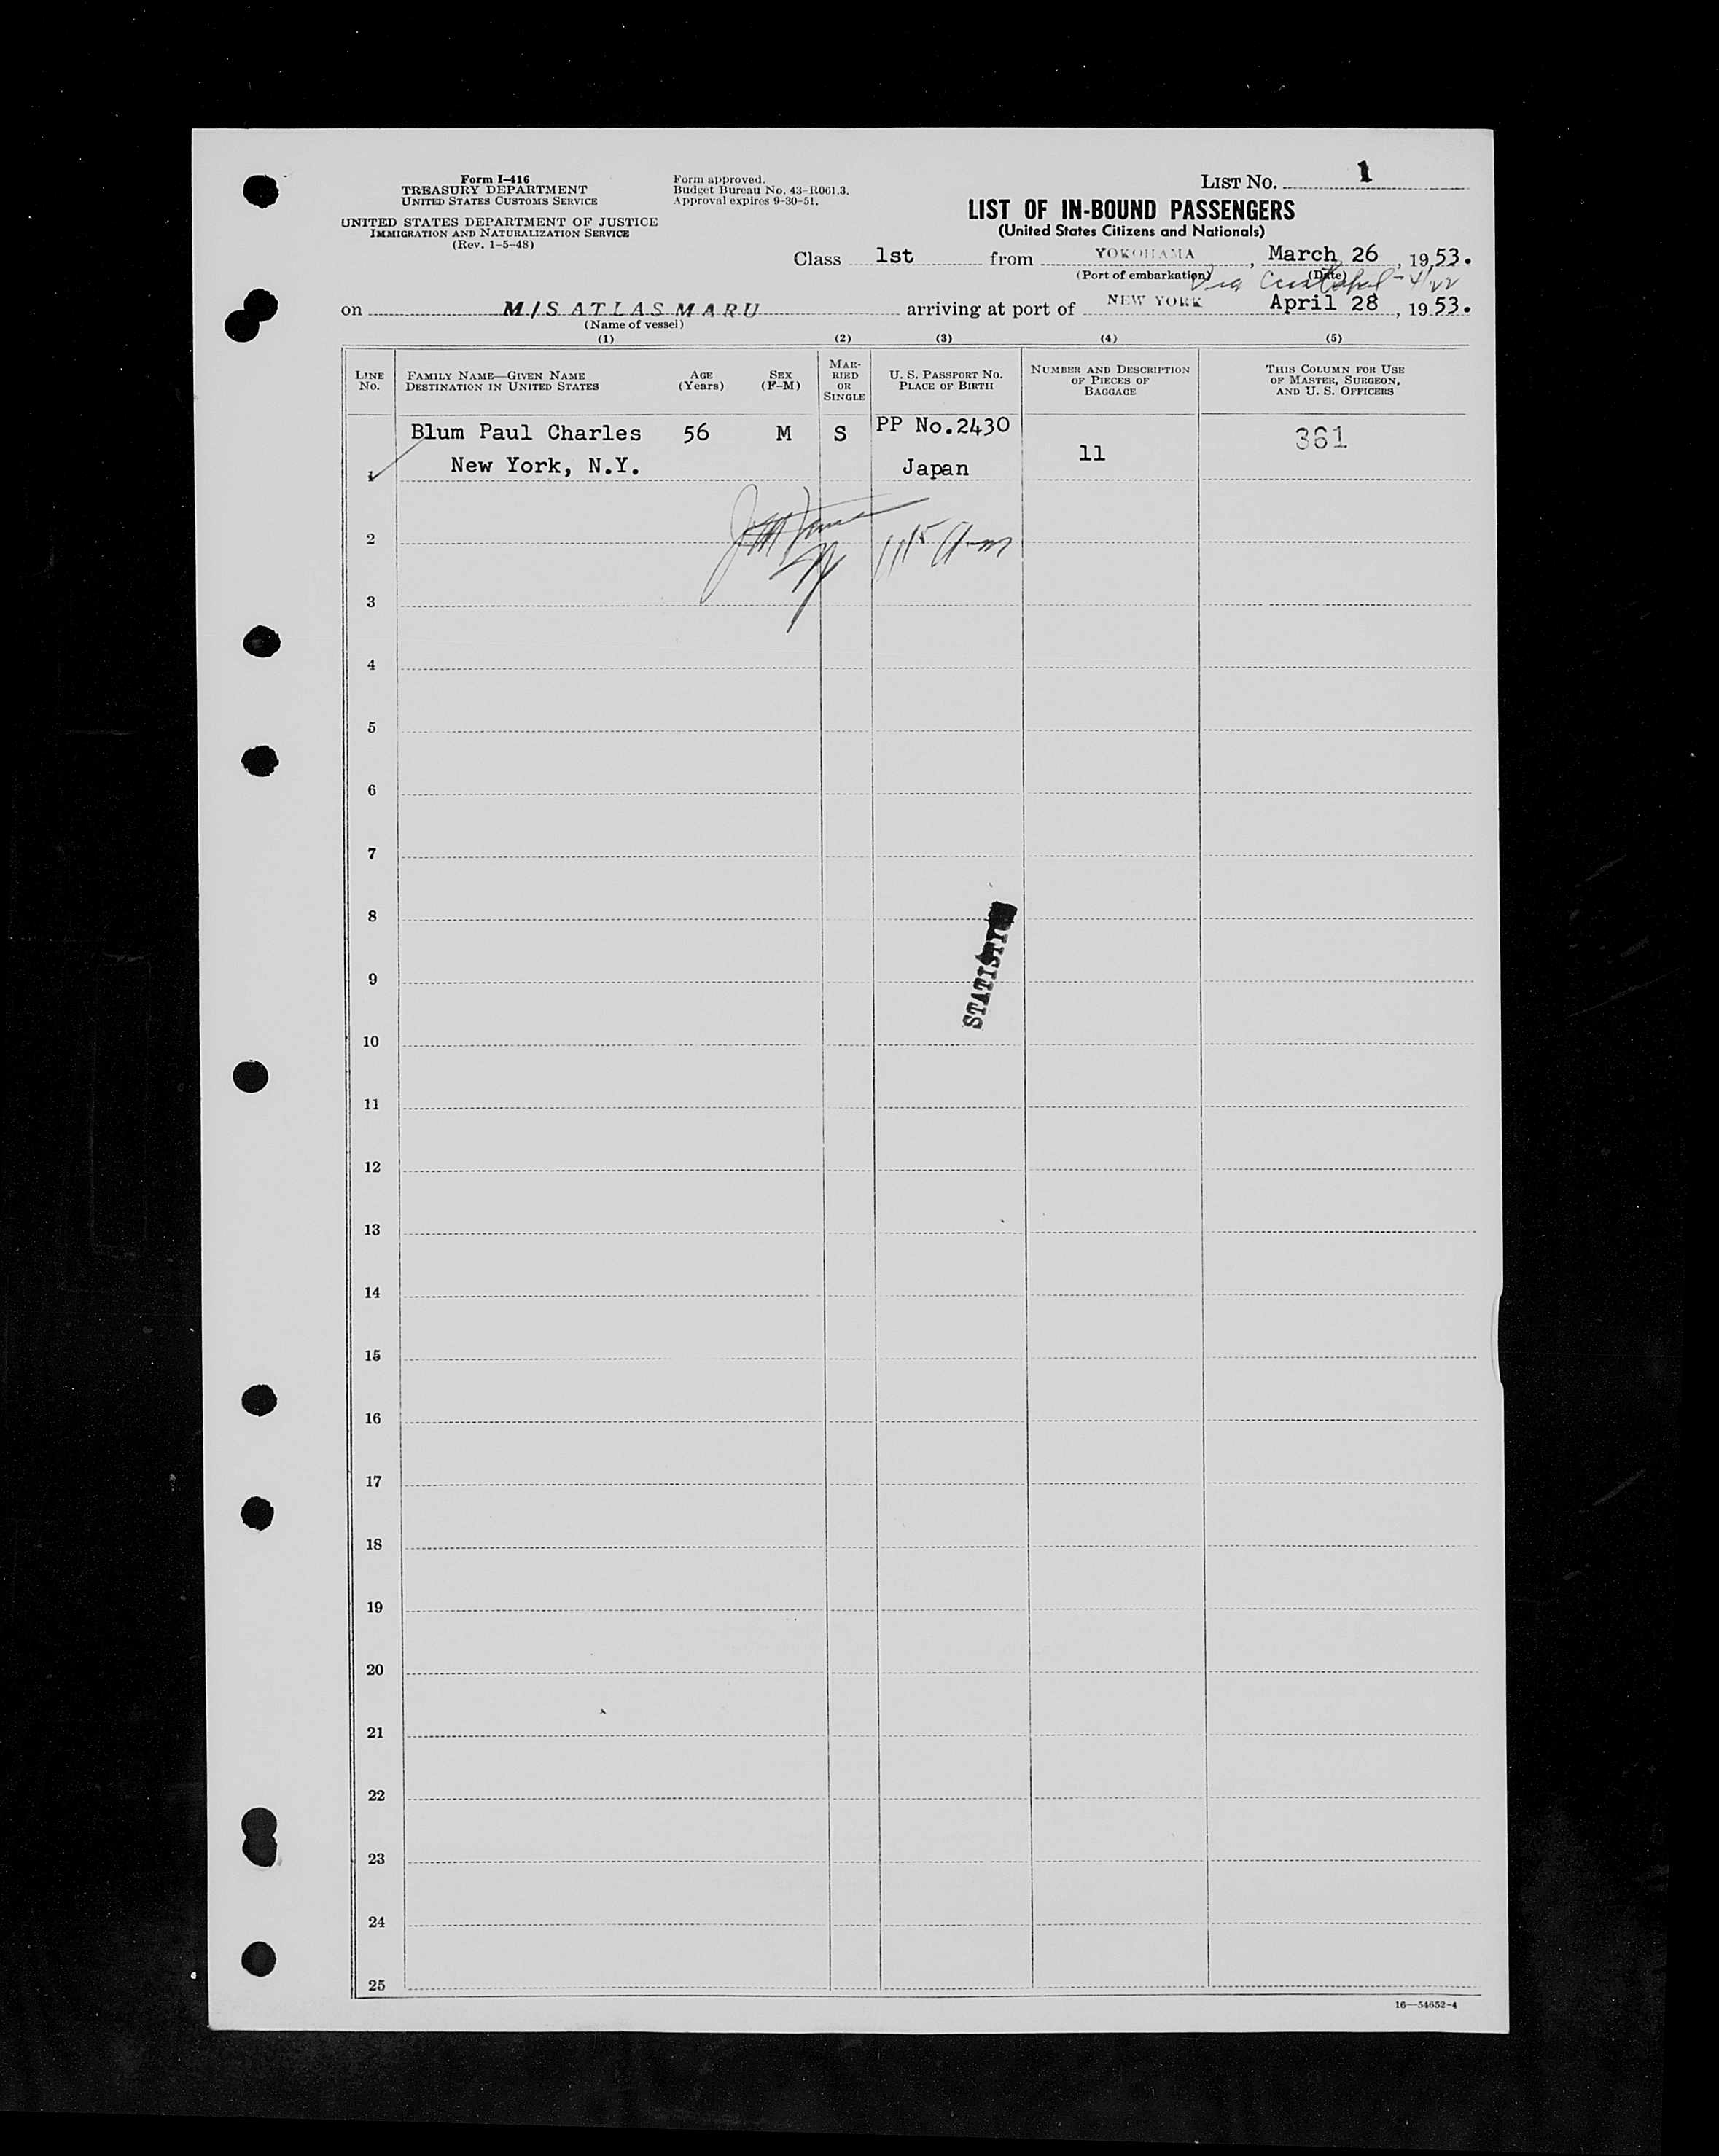 Form I-416
TREASURY DEPARTMENT
UNITED STATES CUSTOMS SERVICE
UNITED STATES DEPARTMENT OF JUSTICE
IMMIGRATION AND NATURALIZATION SERVICE
(Rev. 1-5-48)
Form approved.
Budget Bureau No. 43-R061.3.
Approval expires 9-30-51.
LIST NO. 1
LIST OF IN-BOUND PASSENGERS
(United States Citizens and Nationals)
Class 1st from YOKOHAMA, March 26, 1953.
(Port of embarkation) (Date)
Via Cristobal - 4/22
on M/S ATLAS MARU arriving at port of NEW YORK April 28, 1953.
(Name of vessel)
(1) (2) (3) (4) (5)
LINE NO.
FAMILY NAME—GIVEN NAME
DESTINATION IN UNITED STATES
AGE
(Years)
SEX
(F-M)
MAR-
RIED
OR
SINGLE
U. S. PASSPORT NO.
PLACE OF BIRTH
NUMBER AND DESCRIPTION
OF PIECES OF
BAGGAGE
THIS COLUMN FOR USE
OF MASTER, SURGEON,
AND U. S. OFFICERS
Blum Paul Charles 56 M S PP No.2430 11 361
1 New York, N.Y. Japan
2
1115 am
3
4
5
6
7
8
9
10
11
12
13
14
15
16
17
18
19
20
21
22
23
24
25
16—54652-4